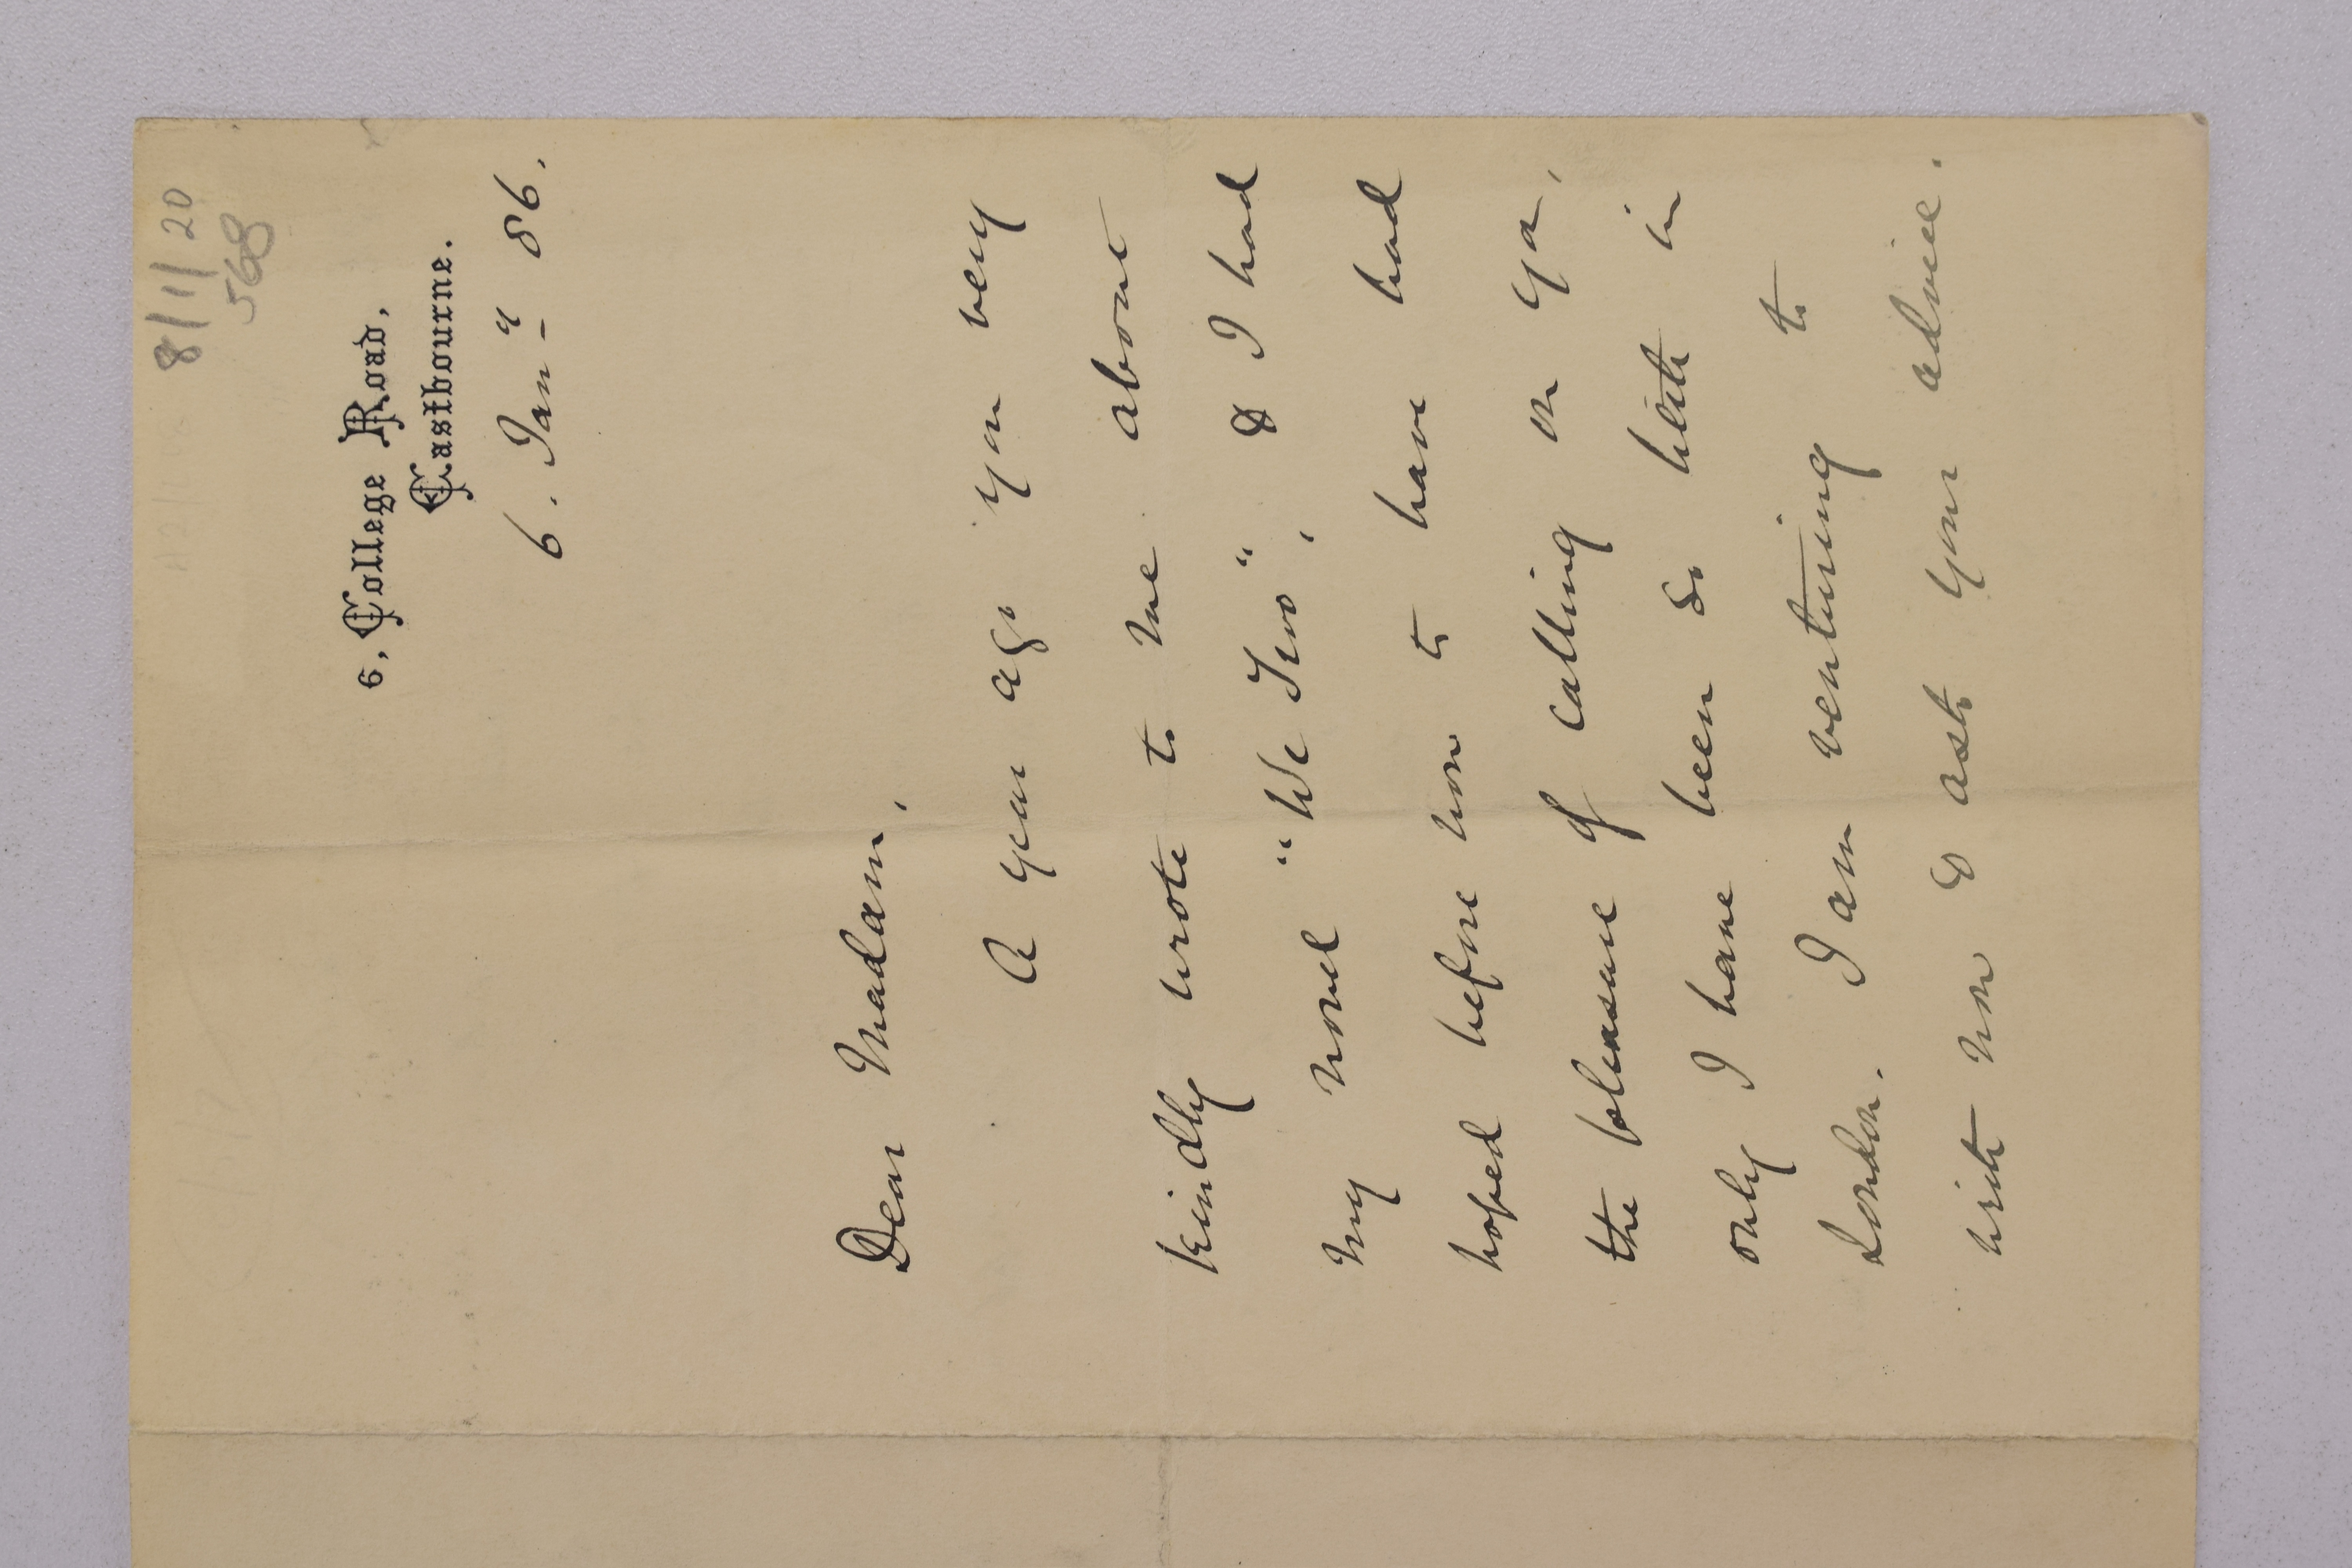 8/1/20
568
6, College Road,
Eastbourne.
6. Jan^y 86.
Dear Madam,
A year ago you very
kindly wrote to me about
my novel "We Two" & I had
hoped before now to have had
the pleasure of calling on you,
only I have been so little in
London. I am venturing to
write now & ask your advice.